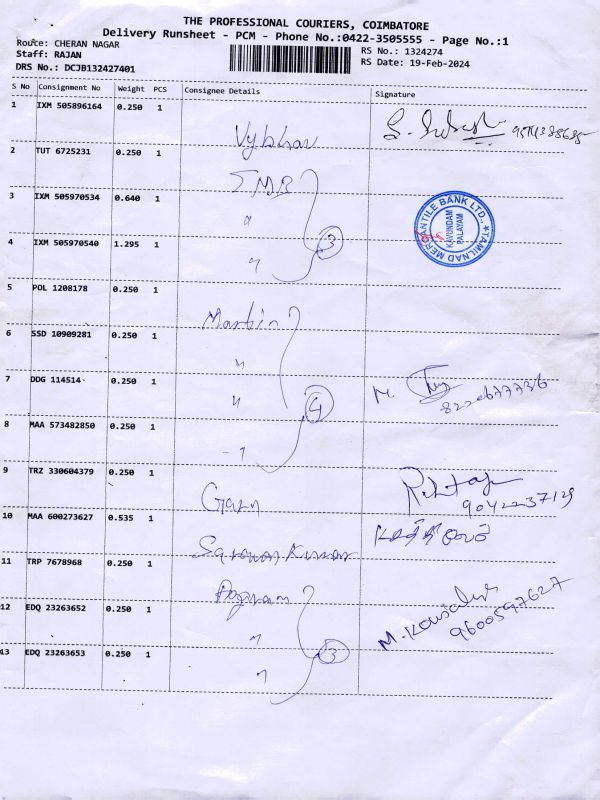 THE PROFESSIONAL COURIERS, COIMBATORE
Delivery Runsheet - PCM - Phone No.:0422-3505555 - Page No.:1
Route: CHERAN NAGAR
RS No.: 1324274
Staff: RAJAN
RS Date: 19-Feb-2024
DRS No.: DCJB132427401
S No Consignment No Weight PCS Consignee Details Signature
1 IXM 505896164 0.250 1
Vybhav
2 TUT 6725231 0.250 1 TMB
3 IXM 505970534 0.640 1 "
4 IXM 505970540 1.295 1 " 3
TAMILNAD MERCANTILE BANK LTD.,
KAVUNDAM
PALAYAM
5 POL 1208178 0.250 1 Martin
6 SSD 10909281 0.250 1 "
7 DDG 114514 0.250 1 " 4
8 MAA 573482850 0.250 1 "
9 TRZ 330604379 0.250 1
9042237129
10 MAA 600273627 0.535 1
11 TRP 7678968 0.250 1
12 EDQ 23263652 0.250 1 "
M.
9600597627
13 EDQ 23263653 0.250 1 " 3